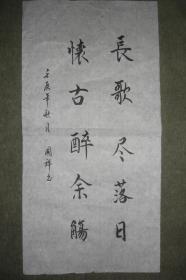 長歌尽落日
懷古醉余觴
壬辰年秋月 國祥書